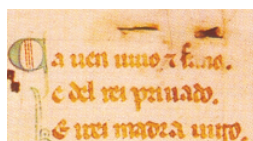 Ca uen uiuo ⁊ sano.
e del rei priuado.
E irei madr a uigo.